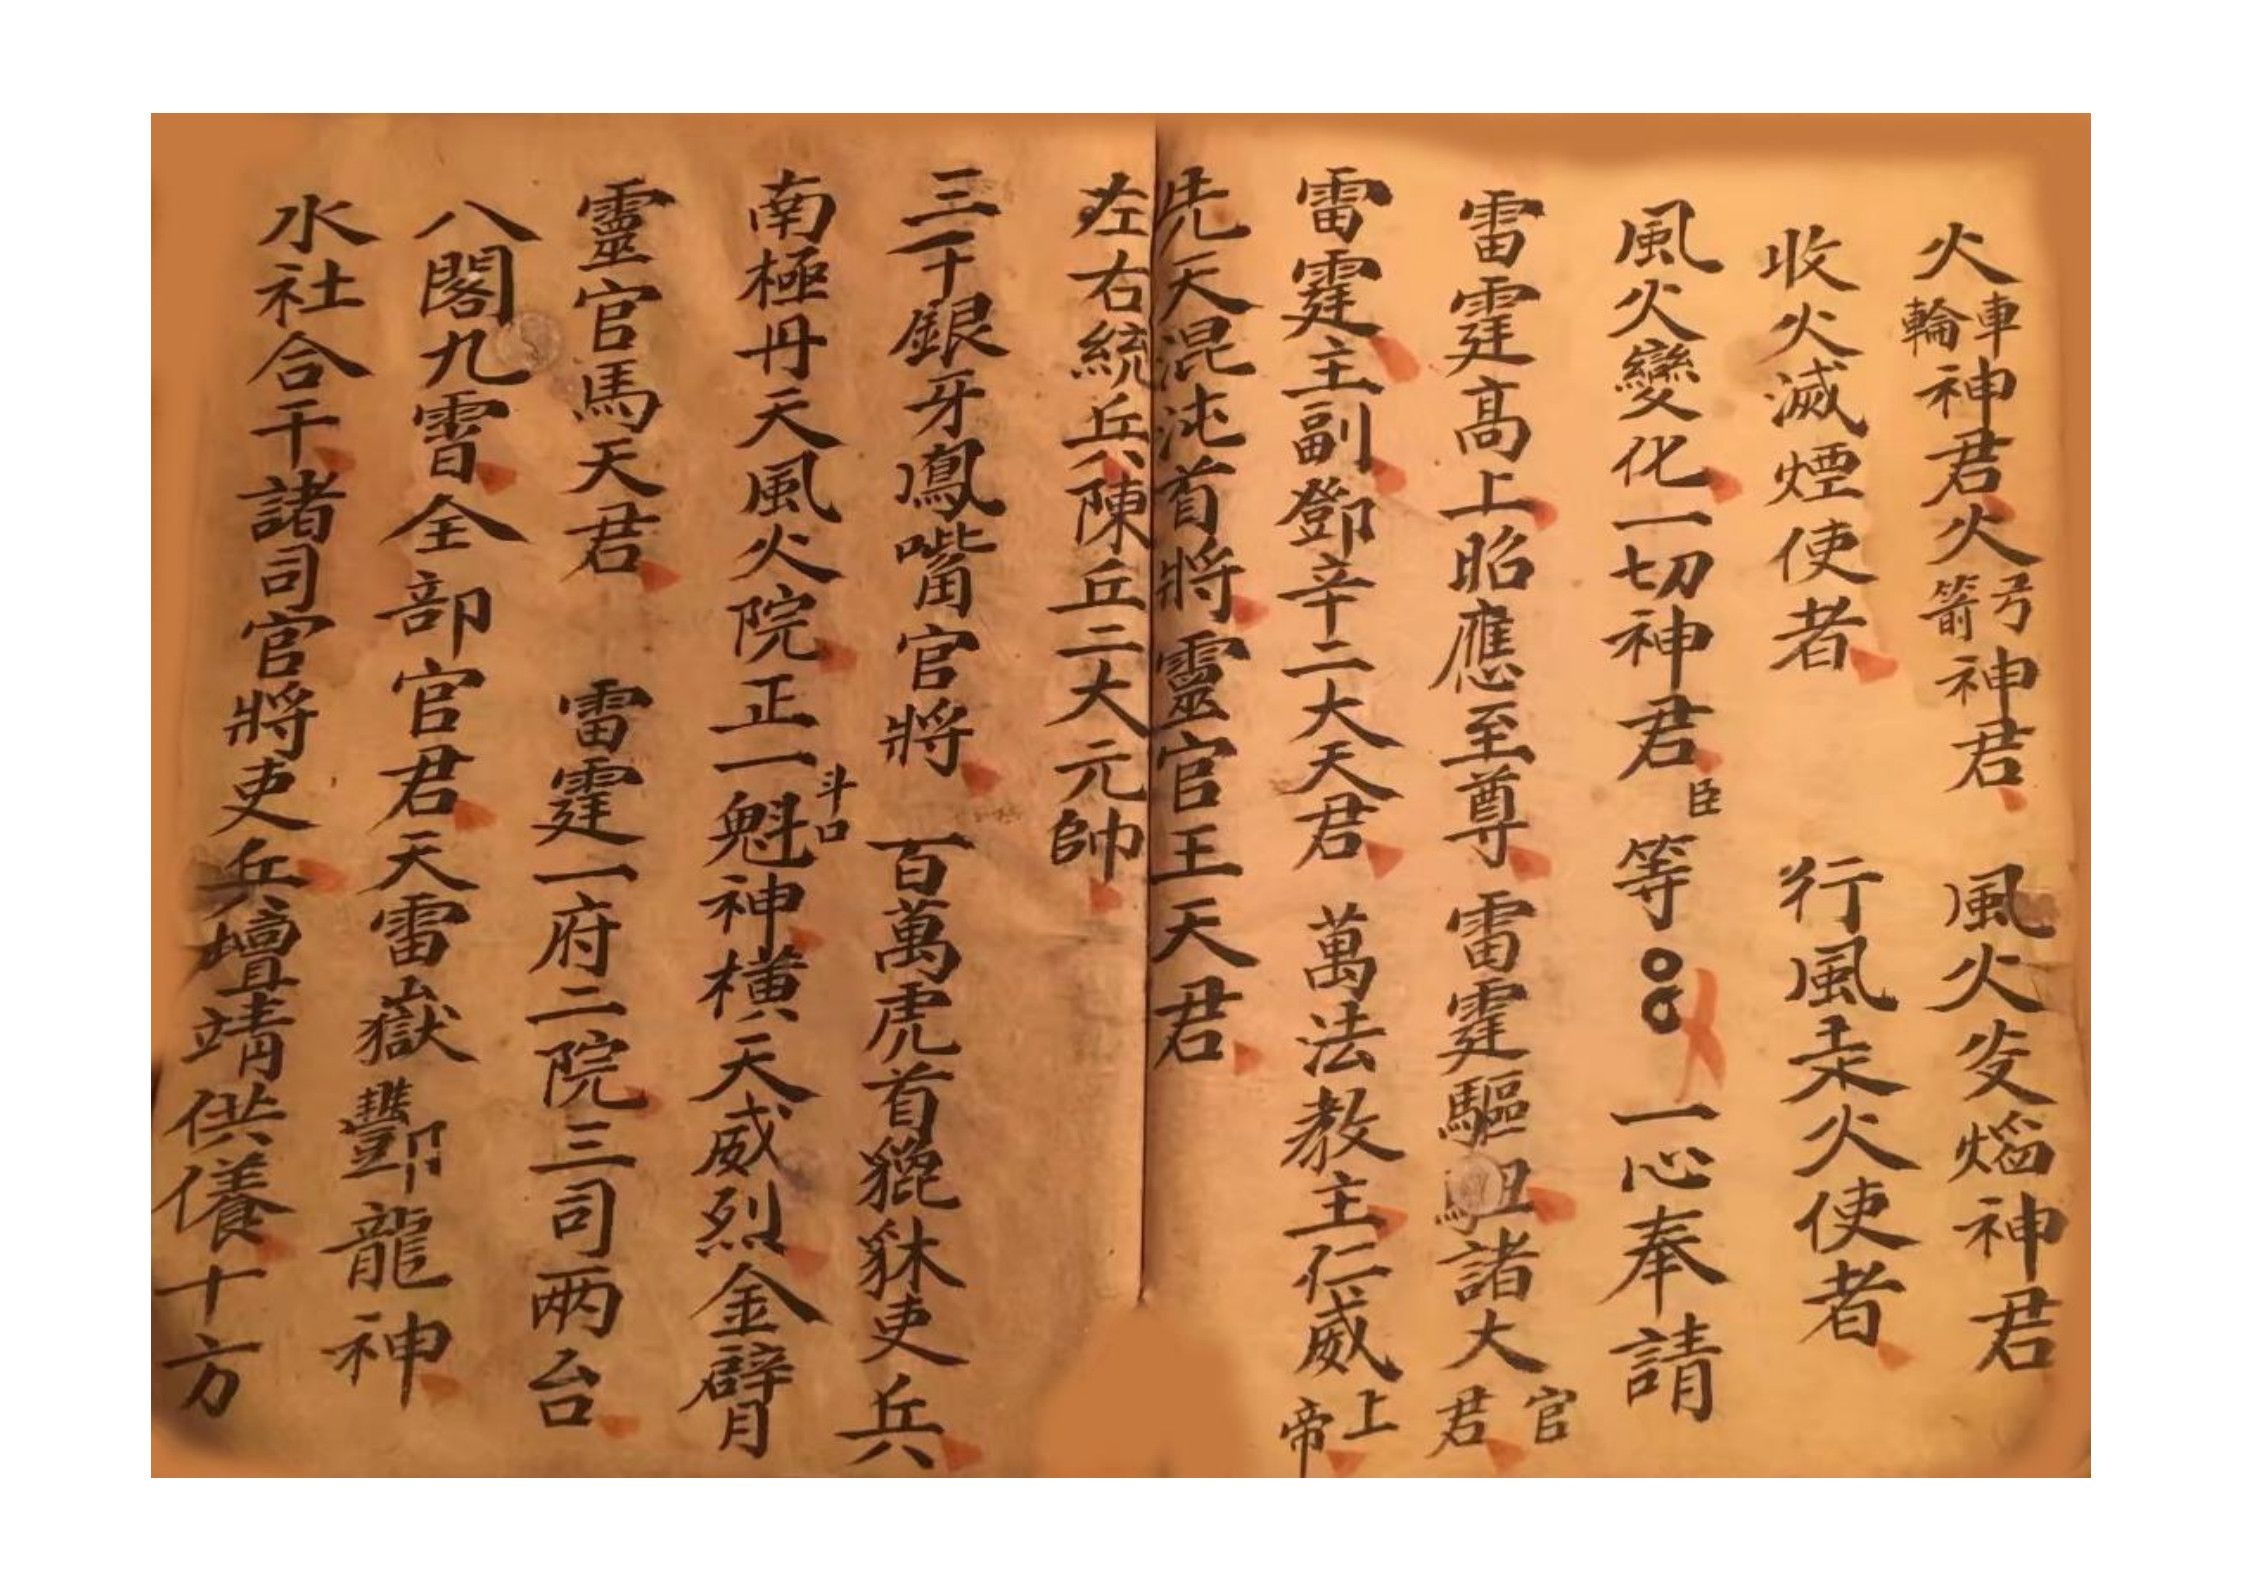 火車輪神君火弓箭神君風火炎熖神君
收火滅煙使者行風走火使者
風火變化一切神君臣等一心奉請
雷霆高上昭應至尊雷霆驅諸大官君
雷霆主副鄧辛二大天君萬法教主仁威上帝
先天混沌首將靈官王天君
左右統兵陳丘二大元帥
三千銀牙鳳嘴官將百萬虎首貔貅吏兵
南極丹天風火院正一斗口魁神橫天威烈金臂
靈官馬天君雷霆一府二院三司两台
八閣九霄全部官君天雷嶽酆龍神
水社合干諸司官將吏兵壇靖供養十方